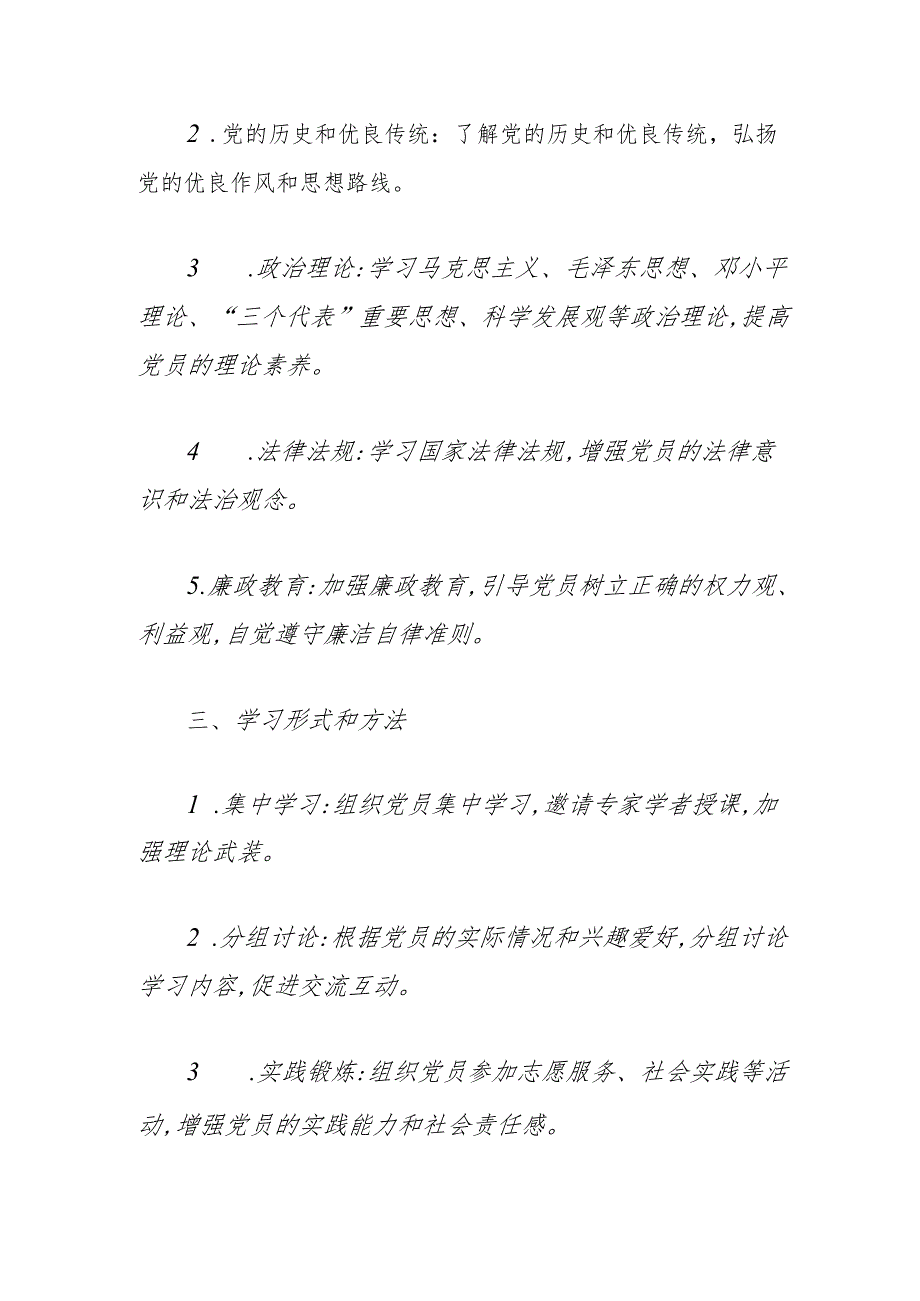 2 .党的历史和优良传统：了解党的历史和优良传统，弘扬
党的优良作风和思想路线。
3 .政治理论:学习马克思主义、毛泽东思想、邓小平
理论、“三个代表”重要思想、科学发展观等政治理论,提高
党员的理论素养。
4 .法律法规:学习国家法律法规,增强党员的法律意
识和法治观念。
5.廉政教育:加强廉政教育,引导党员树立正确的权力观、
利益观,自觉遵守廉洁自律准则。
三、学习形式和方法
1 .集中学习:组织党员集中学习,邀请专家学者授课,加
强理论武装。
2 .分组讨论:根据党员的实际情况和兴趣爱好,分组讨论
学习内容,促进交流互动。
3 .实践锻炼:组织党员参加志愿服务、社会实践等活
动,增强党员的实践能力和社会责任感。